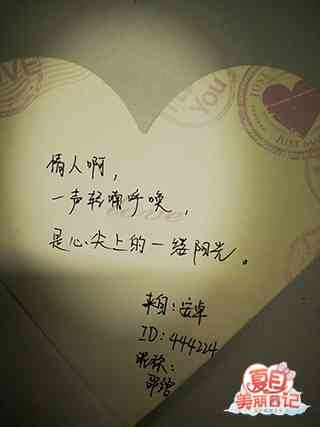 LOVE
YOU
JUST M
JUST M
情人啊，
一声轻喃呼唤，
是心尖上的一缕阳光。
来自：安卓
ID：444224
昵称：
夏目
美丽日记